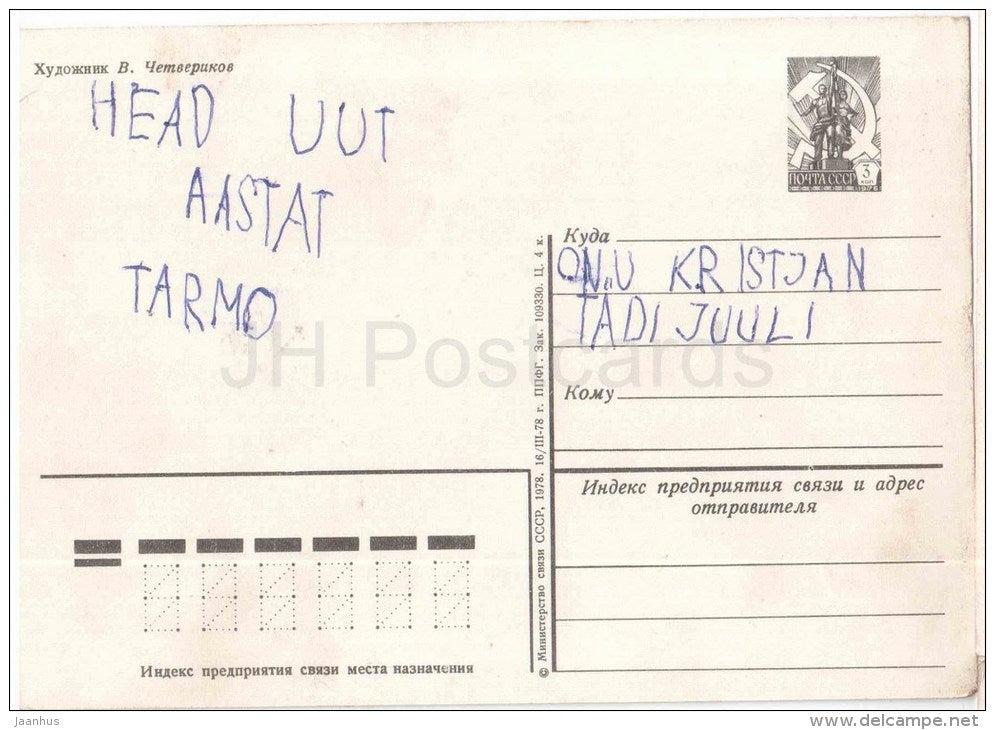 Художник В. Четвериков
HEAD UUT
AASTAT
TARMO
ПОЧТА СССР 3 коп
1976
Куда
ONU KRISTJAN
TADI JUULI
Кому
Индекс предприятия связи и адрес
отправителя
© Министерство связи СССР, 1978. 16/III-78 г. ППФГ. Зак. 109330. Ц. 4 к.
Индекс предприятия связи места назначения
JH Postcards
jaanhus
www.delcampe.net